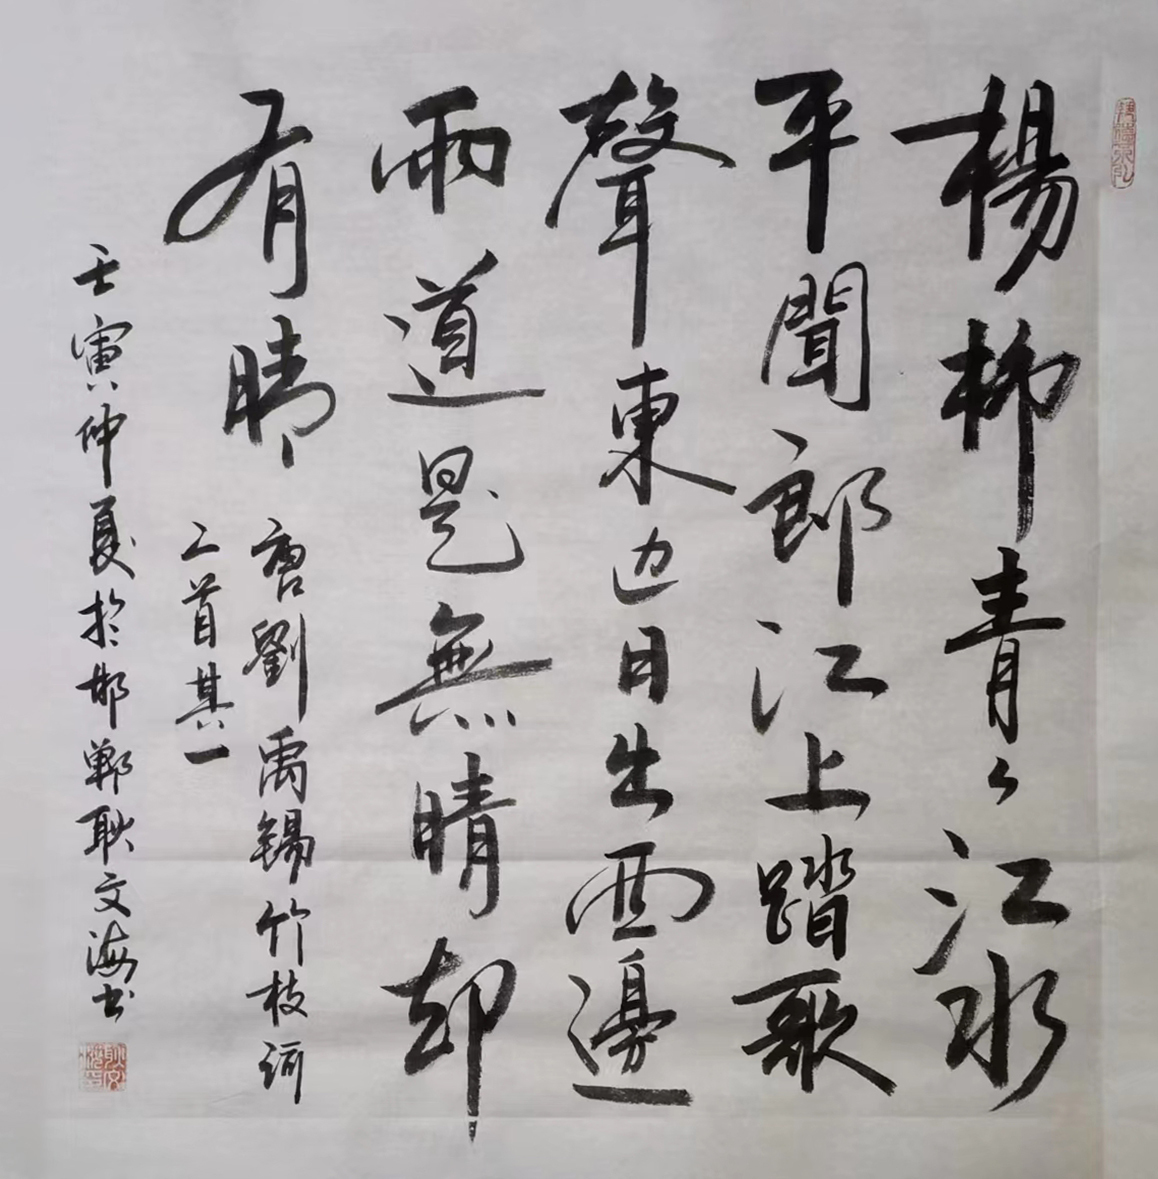 楊柳青々江水
平聞郎江上踏歌
聲東边日出西邊
雨道是無晴却
有晴
唐劉禹錫竹枝詞
二首其一
壬寅仲夏於邯鄲耿文海书